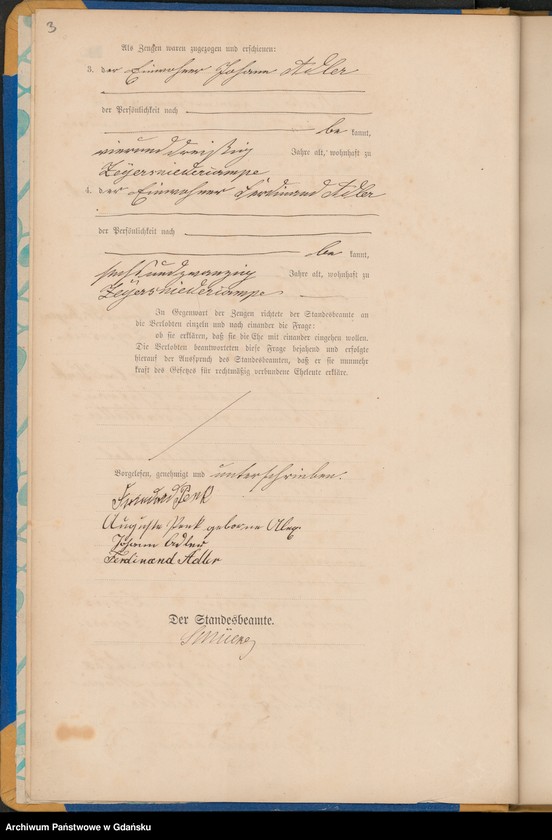 3
Als Zeugen waren zugezogen und erschienen:
3. der Einwohner Johann Adler
der Persönlichkeit nach
be kannt,
vierunddreißig Jahre alt, wohnhaft zu
Zeyersniedercampe
4. der Einwohner Ferdinand Adler
der Persönlichkeit nach
be kannt,
sechsundzwanzig Jahre alt, wohnhaft zu
Zeyersniedercampe
In Gegenwart der Zeugen richtete der Standesbeamte an
die Verlobten einzeln und nach einander die Frage:
ob sie erklären, daß sie die Ehe mit einander eingehen wollen.
Die Verlobten beantworteten diese Frage bejahend und erfolgte
hierauf der Ausspruch des Standesbeamten, daß er sie nunmehr
kraft des Gesetzes für rechtmäßig verbundene Eheleute erkläre.
Vorgelesen, genehmigt und unterschrieben.
Penk
Auguste Penk geborne
Johann Adler
Ferdinand Adler
Der Standesbeamte.
Archiwum Państwowe w Gdańsku